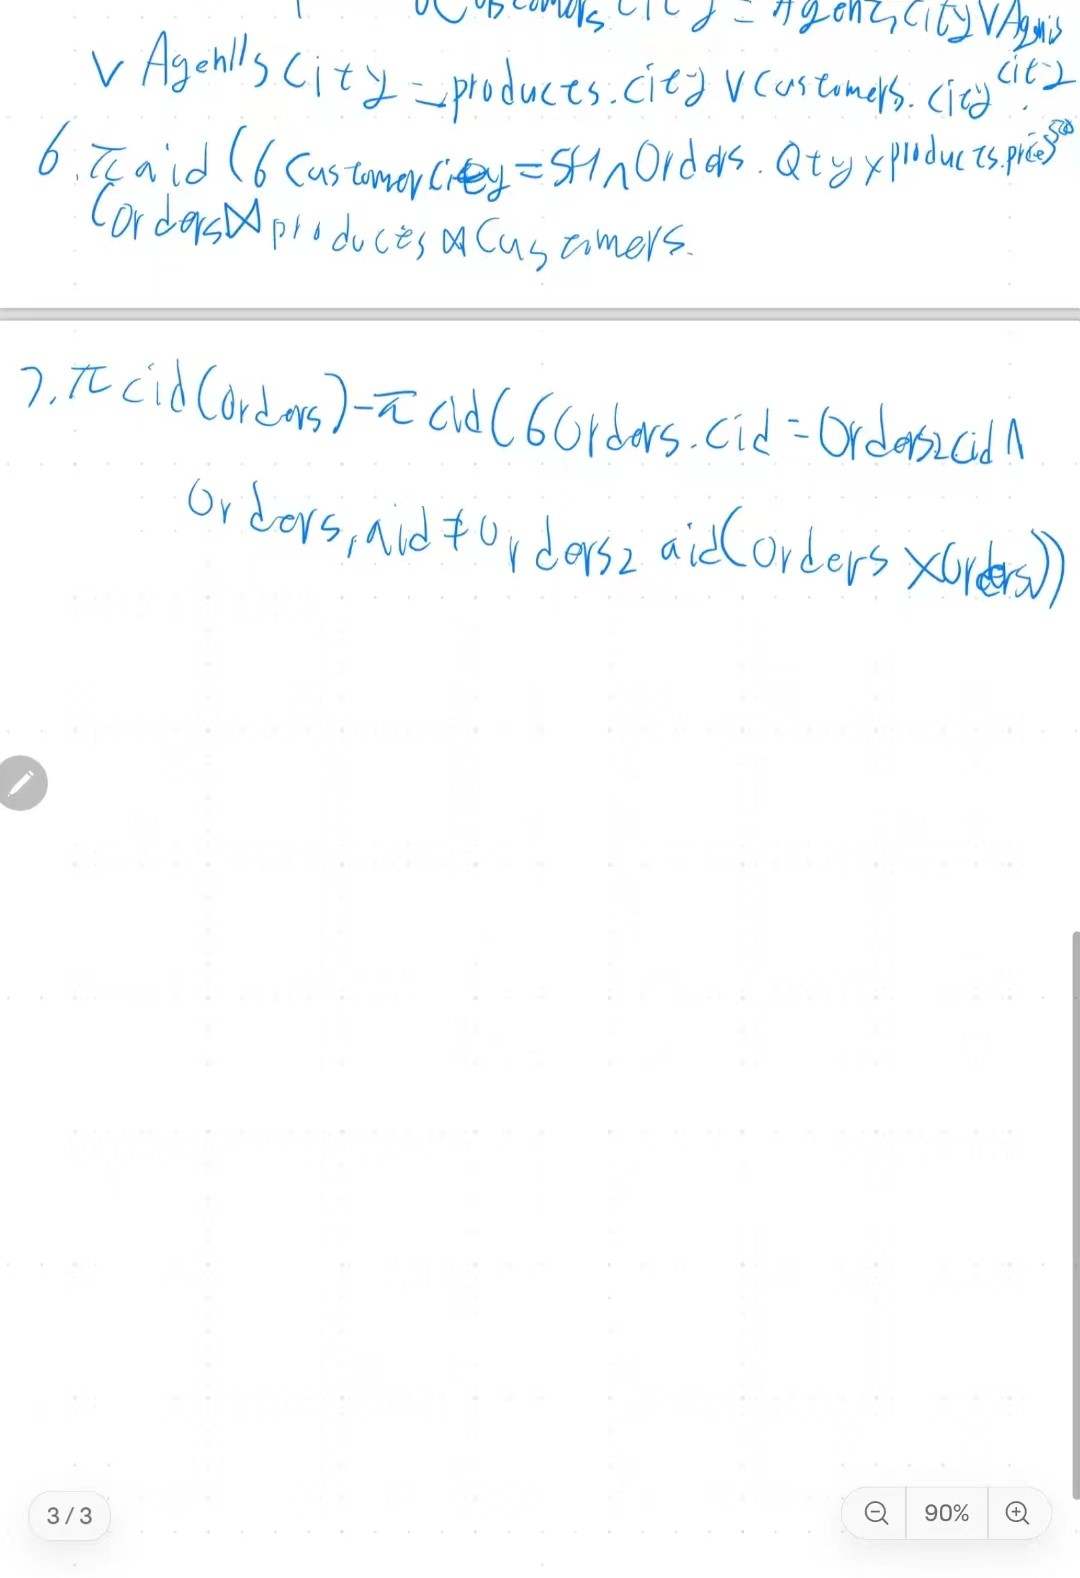 Customers City = Agents City ∨ Agents
∨ Agents City = products.city ∨ Customers. City city
6. π aid (6 Customer City = SH ∧ Orders. Qty x products.price 500
(Orders ⋈ products ⋈ Customers.
7. π cid (Orders) - π cid (6 Orders. cid = Orders2 cid ∧
Orders, aid ≠ Orders2 aid (Orders × Orders))
3 / 3
90%